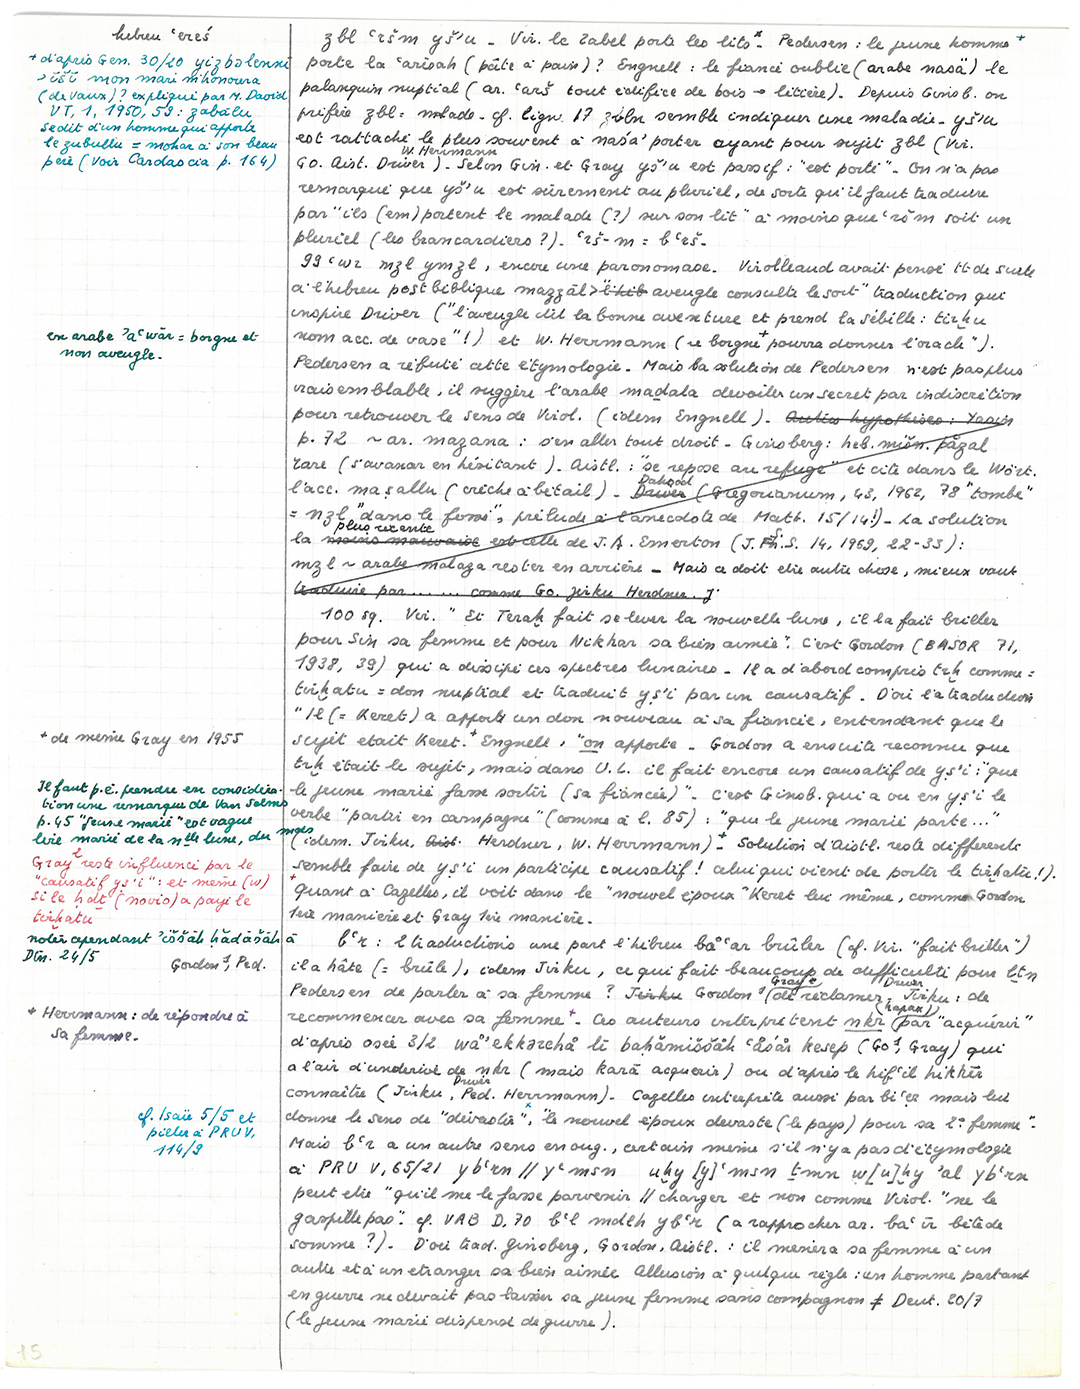 hebreu ʿereś
+ d'après Gen. 30/20 yizbolenni
> ʾišî mon mari m'honoura
(de Vaux)? expliqué par M. David
VT, 1, 1950, 59 : zabālu
se dit d'un homme qui apporte
le zubullu = mohar à son beau
père (voir Cardascia p. 164)
en arabe ʾaʿwār = borgne et
non aveugle.
+ de même Gray en 1955
Il faut p.ê. prendre en considéra-
tion une remarque de Van Selms
p. 45 "jeune marié" est vague
lire marié de la nelle lune, du mois
Gray¹ reste influencé par le
"causatif yṣ'i" : et même (w)
si le ḥdṯ (novio) a payé le
tirḫatu
noter cependant ʾiššāh ḥădāšāh à
Dtn. 24/5
Gordon¹, Ped.
+ Herrmann : de répondre à
sa femme.
cf. Isaïe 5/5 et
piéler à PRU V,
114/9
zbl ʿršm yš'u _ Vir. le Zabel porte les lits x_ Pedersen : le jeune homme +
porte la ʿarîsah (pâte à pain)? Engnell : le fiancé oublie (arabe nasā) le
palanquin nuptial (ar. ʿarš tout édifice de bois → litière). Depuis Ginsb. on
préfère zbl = malade _ cf. lign. 17 zbln semble indiquer une maladie _ yš'u
est rattaché le plus souvent à naśa' porter ayant pour sujet zbl (Vir.
Go. Aist. Driver W. Herrmann) _ Selon Gin. et Gray yš'u est passif : "est porté" _ On n'a pas
remarqué que yš'u est sûrement au pluriel, de sorte qu'il faut traduire
par "ils (em)portent le malade (?) sur son lit" à moins que ʿršm soit un
pluriel (les brancardiers ?) _ ʿrš-m = bʿrš _
99 ʿwr mzl ymzl, encore une paronomase. Virolleaud avait pensé tt de suite
à l'hébreu postbiblique mazzāl > "l'hib aveugle consulte le sort" traduction qui
inspire Driver ("l'aveugle dit la bonne aventure et prend la sébille : tirḫu
nom acc. de vase"!) et W. Herrmann (le borgne + pourra donner l'oracle").
Pedersen a réfuté cette étymologie _ Mais la solution de Pedersen n'est pas plus
vraisemblable, il suggère l'arabe maḏala dévoiler un secret par indiscrétion
pour retrouver le sens de Virol. (idem Engnell) _ Autres hypothèses :
p. 72 ~ ar. mazana : s'en aller tout droit _ Ginsberg : heb. mišn. pāzal
rare (s'avancer en hésitant) _ Aistl. : "se repose au refuge" et cite dans le Wört.
l'acc. maṣallu (crèche à bétail) _ Driver Dahood (Gregorianum, 43, 1962, 78 "tombe"
= nzl "dans le fossé", prélude à l'anecdote de Matt. 15/14!) _ La solution
la moins mauvaise plus récente est celle de J.A. Emerton (J.S.S. 14, 1969, 22-33) :
mzl ~ arabe malaza rester en arrière _ Mais ce doit être autre chose, mieux vaut
traduire par ...... comme Go. Jirku Herdner. J.
100 sq. Vir. " Et Teraḫ fait se lever la nouvelle lune, il la fait briller
pour Sin sa femme et pour Nikhar sa bien aimée". C'est Gordon (BASOR 71,
1938, 39) qui a dissipé ces spectres lunaires _ Il a d'abord compris trḫ comme =
tirḫatu = don nuptial et traduit yṣ'i par un causatif. D'où la traduction
"Il (= Keret) a apporté un don nouveau à sa fiancée, entendant que le
sujet était Keret. + Engnell, "on apporte _ Gordon a ensuite reconnu que
trḫ était le sujet, mais dans U.L. il fait encore un causatif de yṣ'i : "que
le jeune marié fasse sortir (sa fiancée)" _ C'est Ginsb. qui a vu en yṣ'i le
verbe "partir en campagne" (comme à l. 85) : "que le jeune marié parte..."
(idem Jirku, Aist. Herdner, W. Herrmann) + _ Solution d'Aistl. reste différente
semble faire de yṣ'i un participe causatif ! celui qui vient de porter le tirḫatu !).
+ quant à Cazelles, il voit dans le "nouvel époux" Keret lui même, comme Gordon
1ère manière et Gray 1ère manière.
bʿr : 2 traductions une part l'hébreu bāʿar brûler (cf. Vir. "fait briller")
il a hâte (= brûle), idem Jirku, ce qui fait beaucoup de difficulté pour lṯn
Pedersen de parler à sa femme ? Jirku Gordon¹ (Gray² de réclamer, Driver Jirku : de
recommencer avec sa femme + _ Ces auteurs interprètent nkr (hapax) par "acquérir"
d'après osée 3/2 wā'ekkərehā lî baḥămiššāh ʿāśār kesep (Go¹, Gray) qui
a l'air d'un dérivé de nkr (mais karā acquérir) ou d'après le hifʿil hikkîr
connaître (Jirku, Driver Ped. Herrmann) _ Cazelles interprète aussi par biʿer mais lui
donne le sens de "dévaster" x, "le nouvel époux dévaste (le pays) pour sa 2e femme" _
Mais bʿr a un autre sens en oug., certain même s'il n'y a pas d'étymologie
à PRU V, 65/21 ybʿrn // yʿmsn uhy [y]ʿmsn ṯmn w[u]hy 'al ybʿrn
peut être "qu'il me le fasse parvenir // charger et non comme Virol. "ne le
gaspille pas". cf. VAB D, 70 bʿl mdlh ybʿr (à rapprocher ar. baʿīr bête de
somme ?) _ D'où trad. Ginsberg, Gordon, Aistl. : il mènera sa femme à un
autre et à un étranger sa bien aimée Allusion à quelque règle : un homme partant
en guerre ne devait pas laisser sa jeune femme sans compagnon ≠ Deut. 20/7
(le jeune marié dispensé de guerre).
15